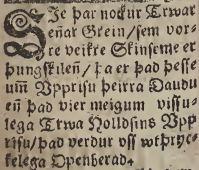 SJe þar nockur Trwar
Greinar Grein/ sem vor-
re veikre Skinseme er
þungskilen/ þa er þad þesse
um̃ Vpprisu þeirra Daudu
en̄ þad vier meigum vissu-
lega Trwa Holldsins Vpp
risu/ þad verdur oss wtþryc-
kelega Openberad.